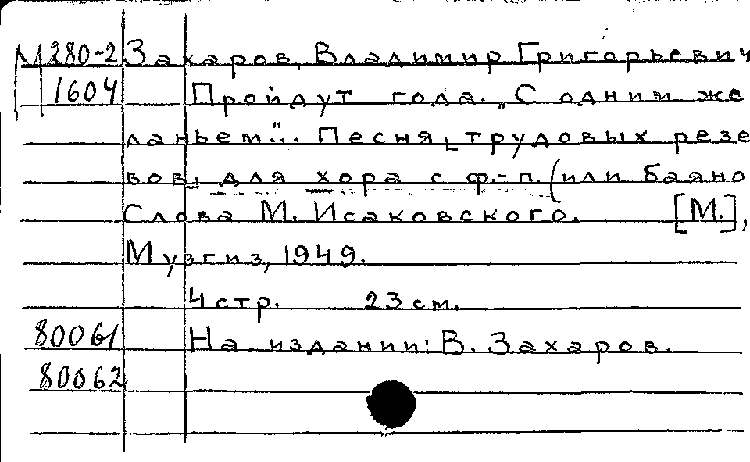 М280-2 Захаров, Владимир Григорьевич
1604 Пройдут года. "С одним же
ланьем"... Песня [трудовых резе
вов] для хора с ф.-п. (или баяно
Слова М. Исаковского. [М.],
Музгиз, 1949.
4 стр. 23 см.
80061 На издании: В. Захаров.
80062